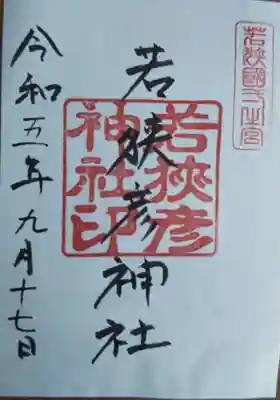 若狭國一之宮
若狹彦神社
若狹彦
神社印
令和五年九月十七日